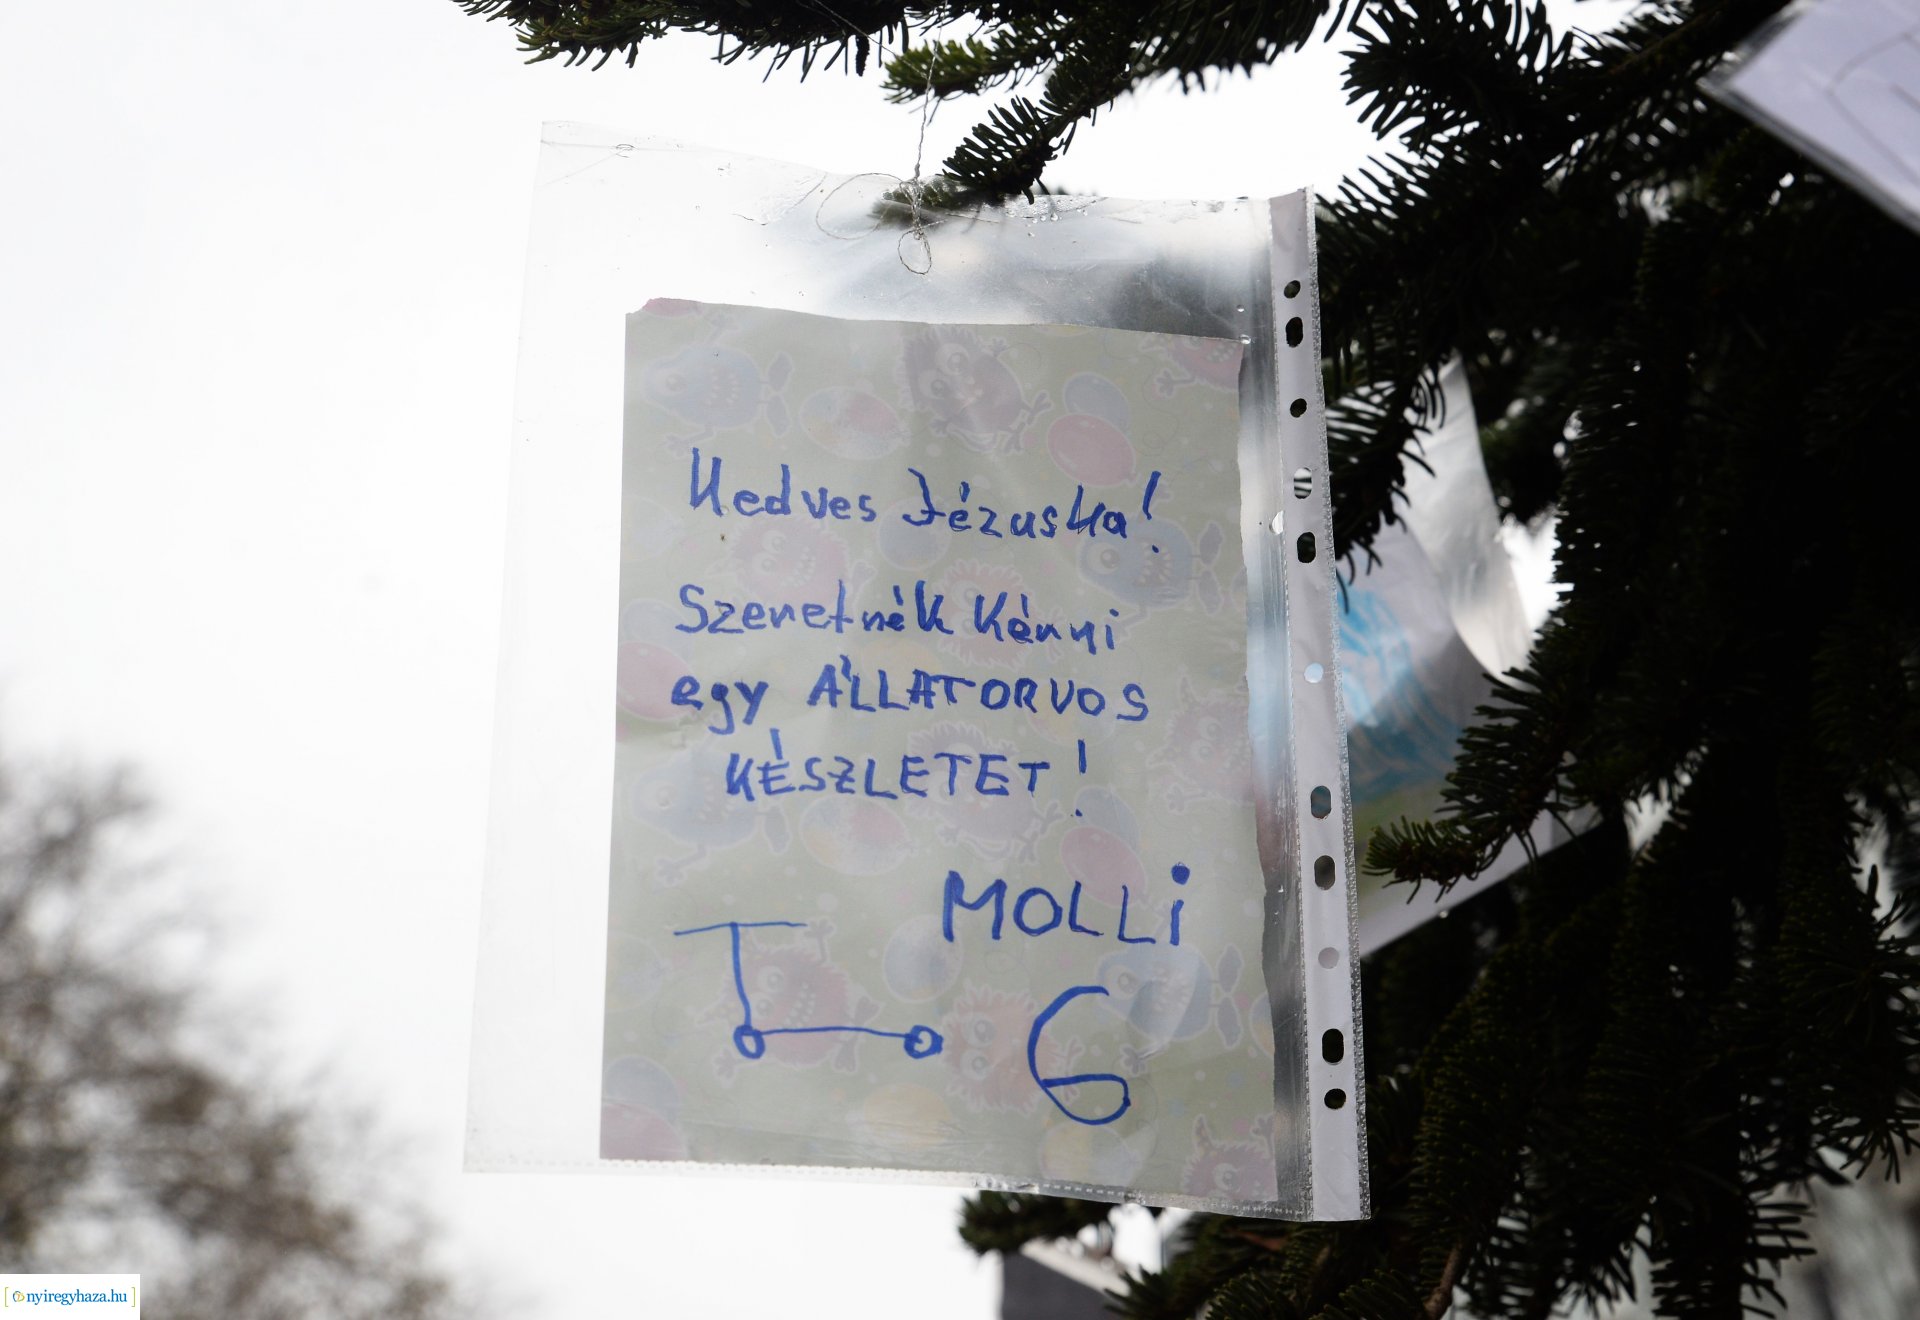 Kedves Jézuska!
Szeretnék Kérni
egy ÁLLATORVOS
KÉSZLETET!
MOLLi
6
nyiregyhaza.hu